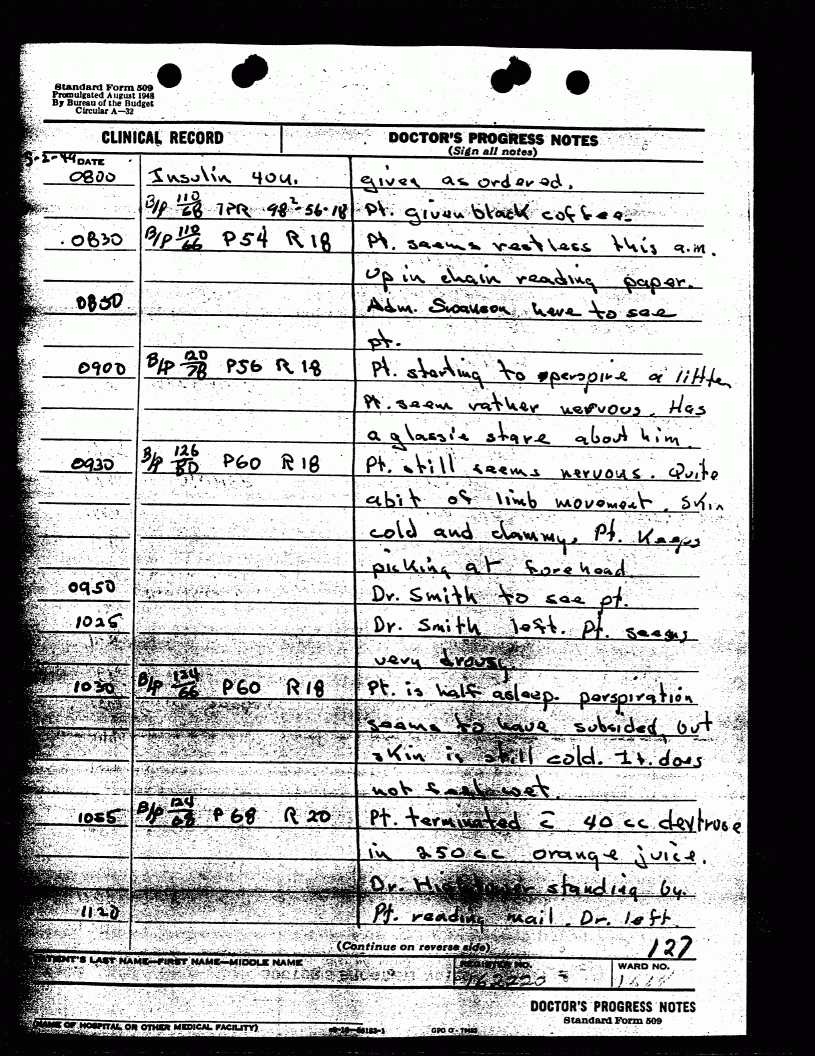 Standard Form 509
Promulgated August 1948
By Bureau of the Budget
Circular A—32
CLINICAL RECORD
DOCTOR'S PROGRESS NOTES
(Sign all notes)
DATE
0800 Insulin 40u. given as ordered.
B/P 110/68 TPR 98²-56-18 Pt. given black coffee.
0830 B/P 110/66 P54 R18 Pt. seems restless this a.m.
Up in chair reading paper.
0850 Adm. Swanson here to see
pt.
0900 B/P 120/78 P56 R18 Pt. starting to perspire a little
Pt. seem rather nervous. Has
a glassie stare about him.
0930 B/P 126/80 P60 R18 Pt. still seems nervous. Quite
abit of limb movement. Skin
cold and clammy. Pt. Keeps
picking at forehead.
0950 Dr. Smith to see pt.
1025 Dr. Smith left. Pt. seems
very drousy.
1030 B/P 124/66 P60 R18 Pt. is half asleep. perspiration
seems to have subsided but
skin is still cold. It does
not feel wet.
1055 B/P 124/68 P68 R20 Pt. terminated c̄ 40 cc dextrose
in 250cc orange juice.
Dr. standing by.
1120 Pt. reading mail. Dr. left.
(Continue on reverse side)
127
PATIENT'S LAST NAME—FIRST NAME—MIDDLE NAME
REGISTER NO.
WARD NO.
DOCTOR'S PROGRESS NOTES
Standard Form 509
(NAME OF HOSPITAL OR OTHER MEDICAL FACILITY)